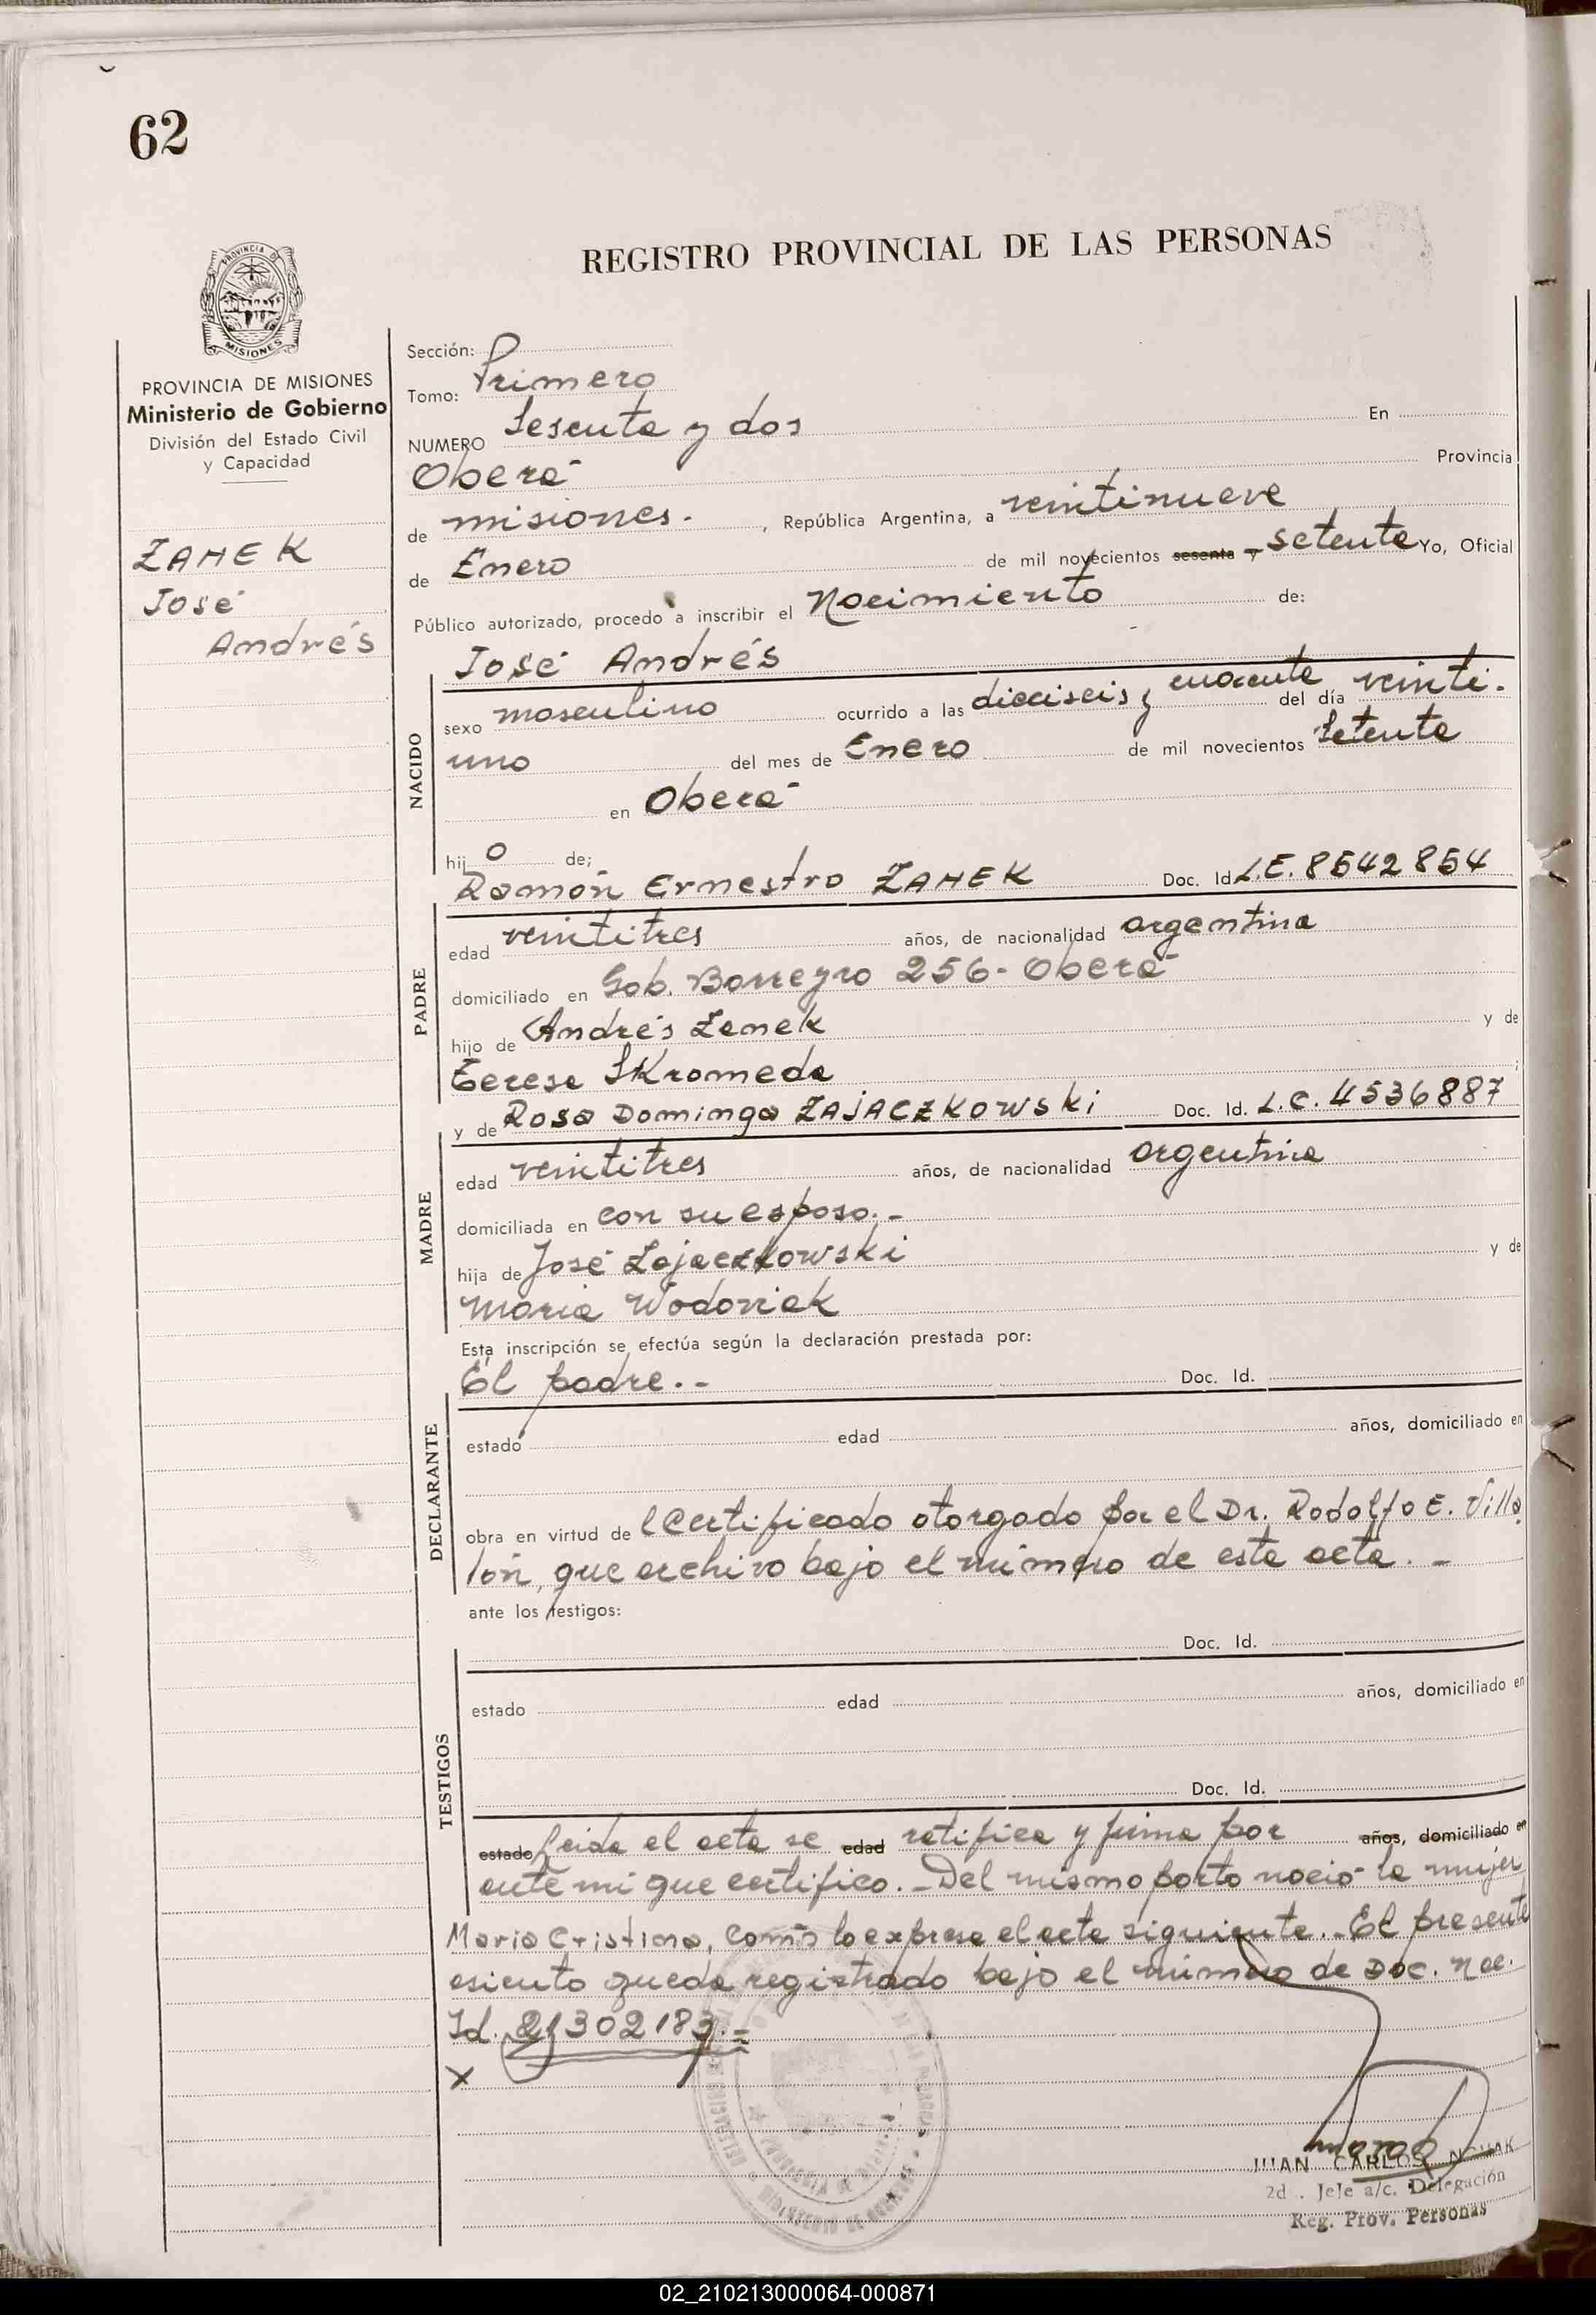 62
REGISTRO PROVINCIAL DE LAS PERSONAS
PROVINCIA DE MISIONES
Ministerio de Gobierno
División del Estado Civil
y Capacidad
ZAMEK
José
Andrés
Sección:
Tomo: Primero
NUMERO Sesenta y dos En
Oberá Provincia
de misiones. , República Argentina, a veintinueve
de Enero de mil novecientos sesenta y setenta Yo, Oficial
Público autorizado, procedo a inscribir el Nacimiento de:
José Andrés
NACIDO
sexo masculino ocurrido a las dieciseis y cuarenta del día veinti-
uno del mes de Enero de mil novecientos Setenta
en Oberá
hijo de;
Ramón Ernestro ZAMEK Doc. Id L.E. 8542854
PADRE
edad veintitres años, de nacionalidad argentina
domiciliado en Gob. Barreyro 256- Oberá
hijo de Andrés Zamek y de
Teresa SKromeda
y de Rosa Dominga ZAJACZKOWSKi Doc. Id. L.C. 4536887
MADRE
edad veintitres años, de nacionalidad argentina
domiciliada en con su esposo.-
hija de José Zajaczkowski y de
Maria Wodoniak
Esta inscripción se efectúa según la declaración prestada por:
El padre.- Doc. Id.
DECLARANTE
estado edad años, domiciliado en
obra en virtud de l Certificado otorgado por el Dr. Rodolfo E. Villa
lón, que archivo bajo el número de esta acta. -
ante los testigos:
Doc. Id.
TESTIGOS
estado edad años, domiciliado en
Doc. Id.
estado Leida el acta se edad ratifica y firma por años, domiciliado en
ante mi que certifico. - Del mismo parto nació la mujer
Maria Cristina, como lo expresa el acta siguiente.. El presente
asiento queda registrado bajo el número de Doc. Nac.
Id. 21302183.=
X
JUAN CARLOS NOVAK
2d . Jefe a/c. Delegación
Reg. Prov. Personas
02_210213000064-000871